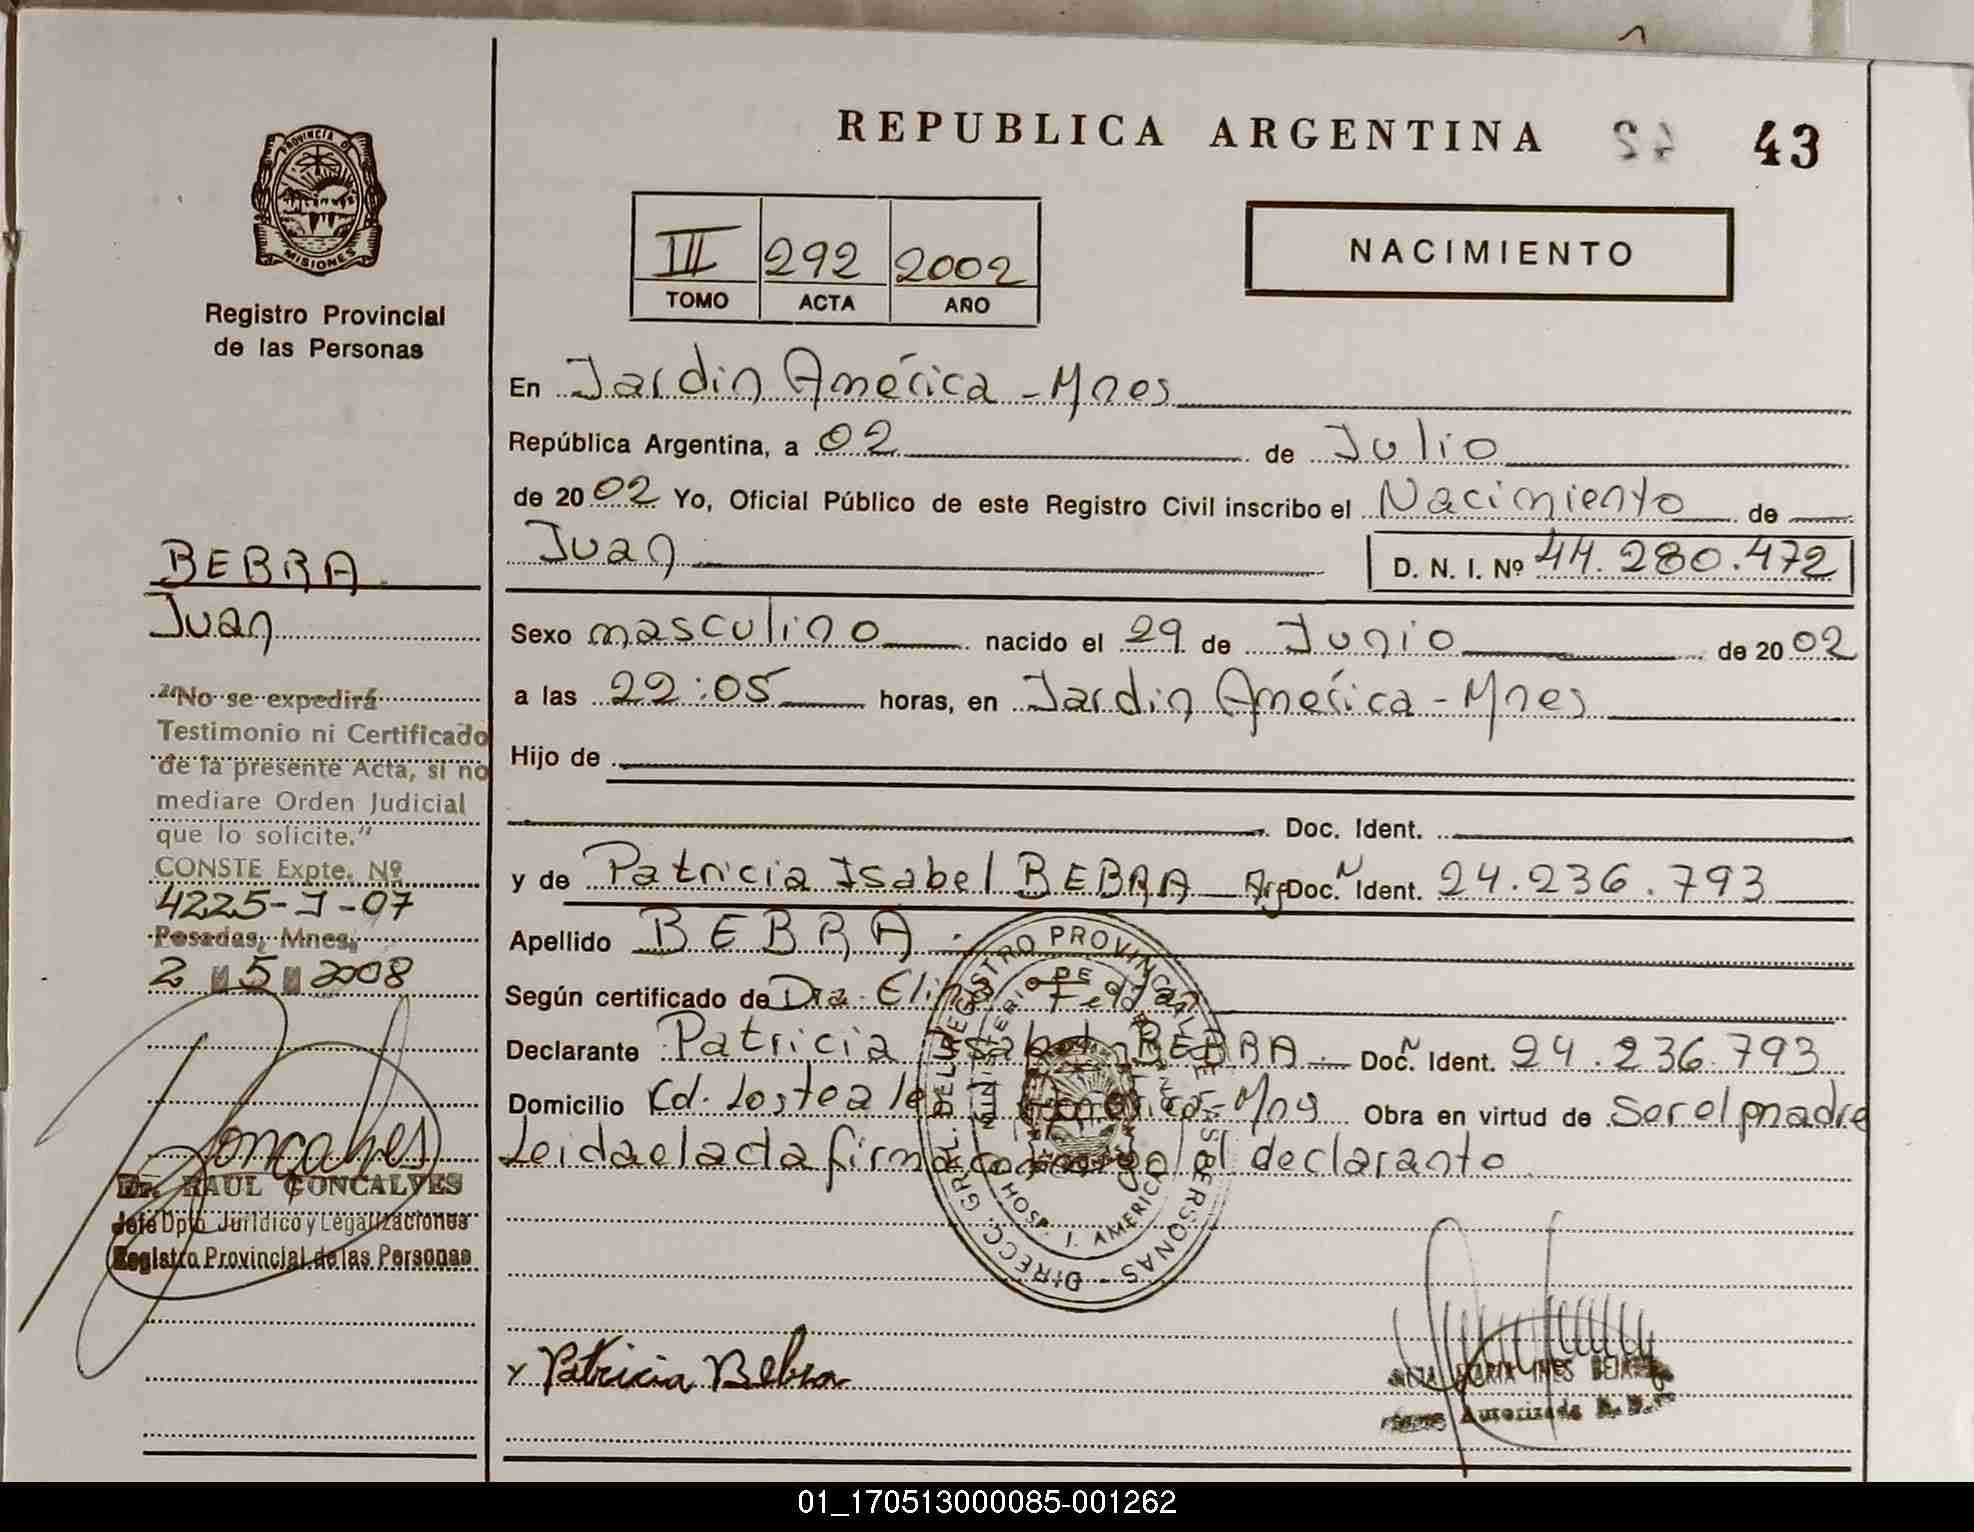 REPUBLICA ARGENTINA 43
PROVINCIA DE
MISIONES
Registro Provincial
de las Personas
III 292 2002
TOMO ACTA AÑO
NACIMIENTO
En Jardin América - Mnes
República Argentina, a 02 de Julio
de 2002 Yo, Oficial Público de este Registro Civil inscribo el Nacimiento de
Juan D. N. I. Nº 44.280.472
Sexo masculino nacido el 29 de Junio de 2002
a las 22:05 horas, en Jardin América - Mnes
Hijo de
Doc. Ident.
y de Patricia Isabel BEBRA Arg Doc. N Ident. 24.236.793
Apellido BEBRA
Según certificado de Dra. Feltan
Declarante Patricia Isabel BEBRA Doc. N Ident. 24.236.793
Domicilio Obra en virtud de Ser el madre
Leida el acta firma conmigo el declarante
Patricia Bebra
INES
Autorizada
DIRECC. GRAL. DEL REGISTRO PROVINCIAL DE LAS PERSONAS
MINISTERIO DE
HOSP. J. AMERICA
BEBRA
Juan
"No se expedirá
Testimonio ni Certificado
de la presente Acta, si no
mediare Orden Judicial
que lo solicite."
CONSTE Expte. Nº
4225-J-07
Posadas, Mnes,
2 5 2008
Goncalves
Dr. RAUL GONCALVES
Jefe Dpto. Jurídico y Legalizaciones
Registro Provincial de las Personas
01_170513000085-001262